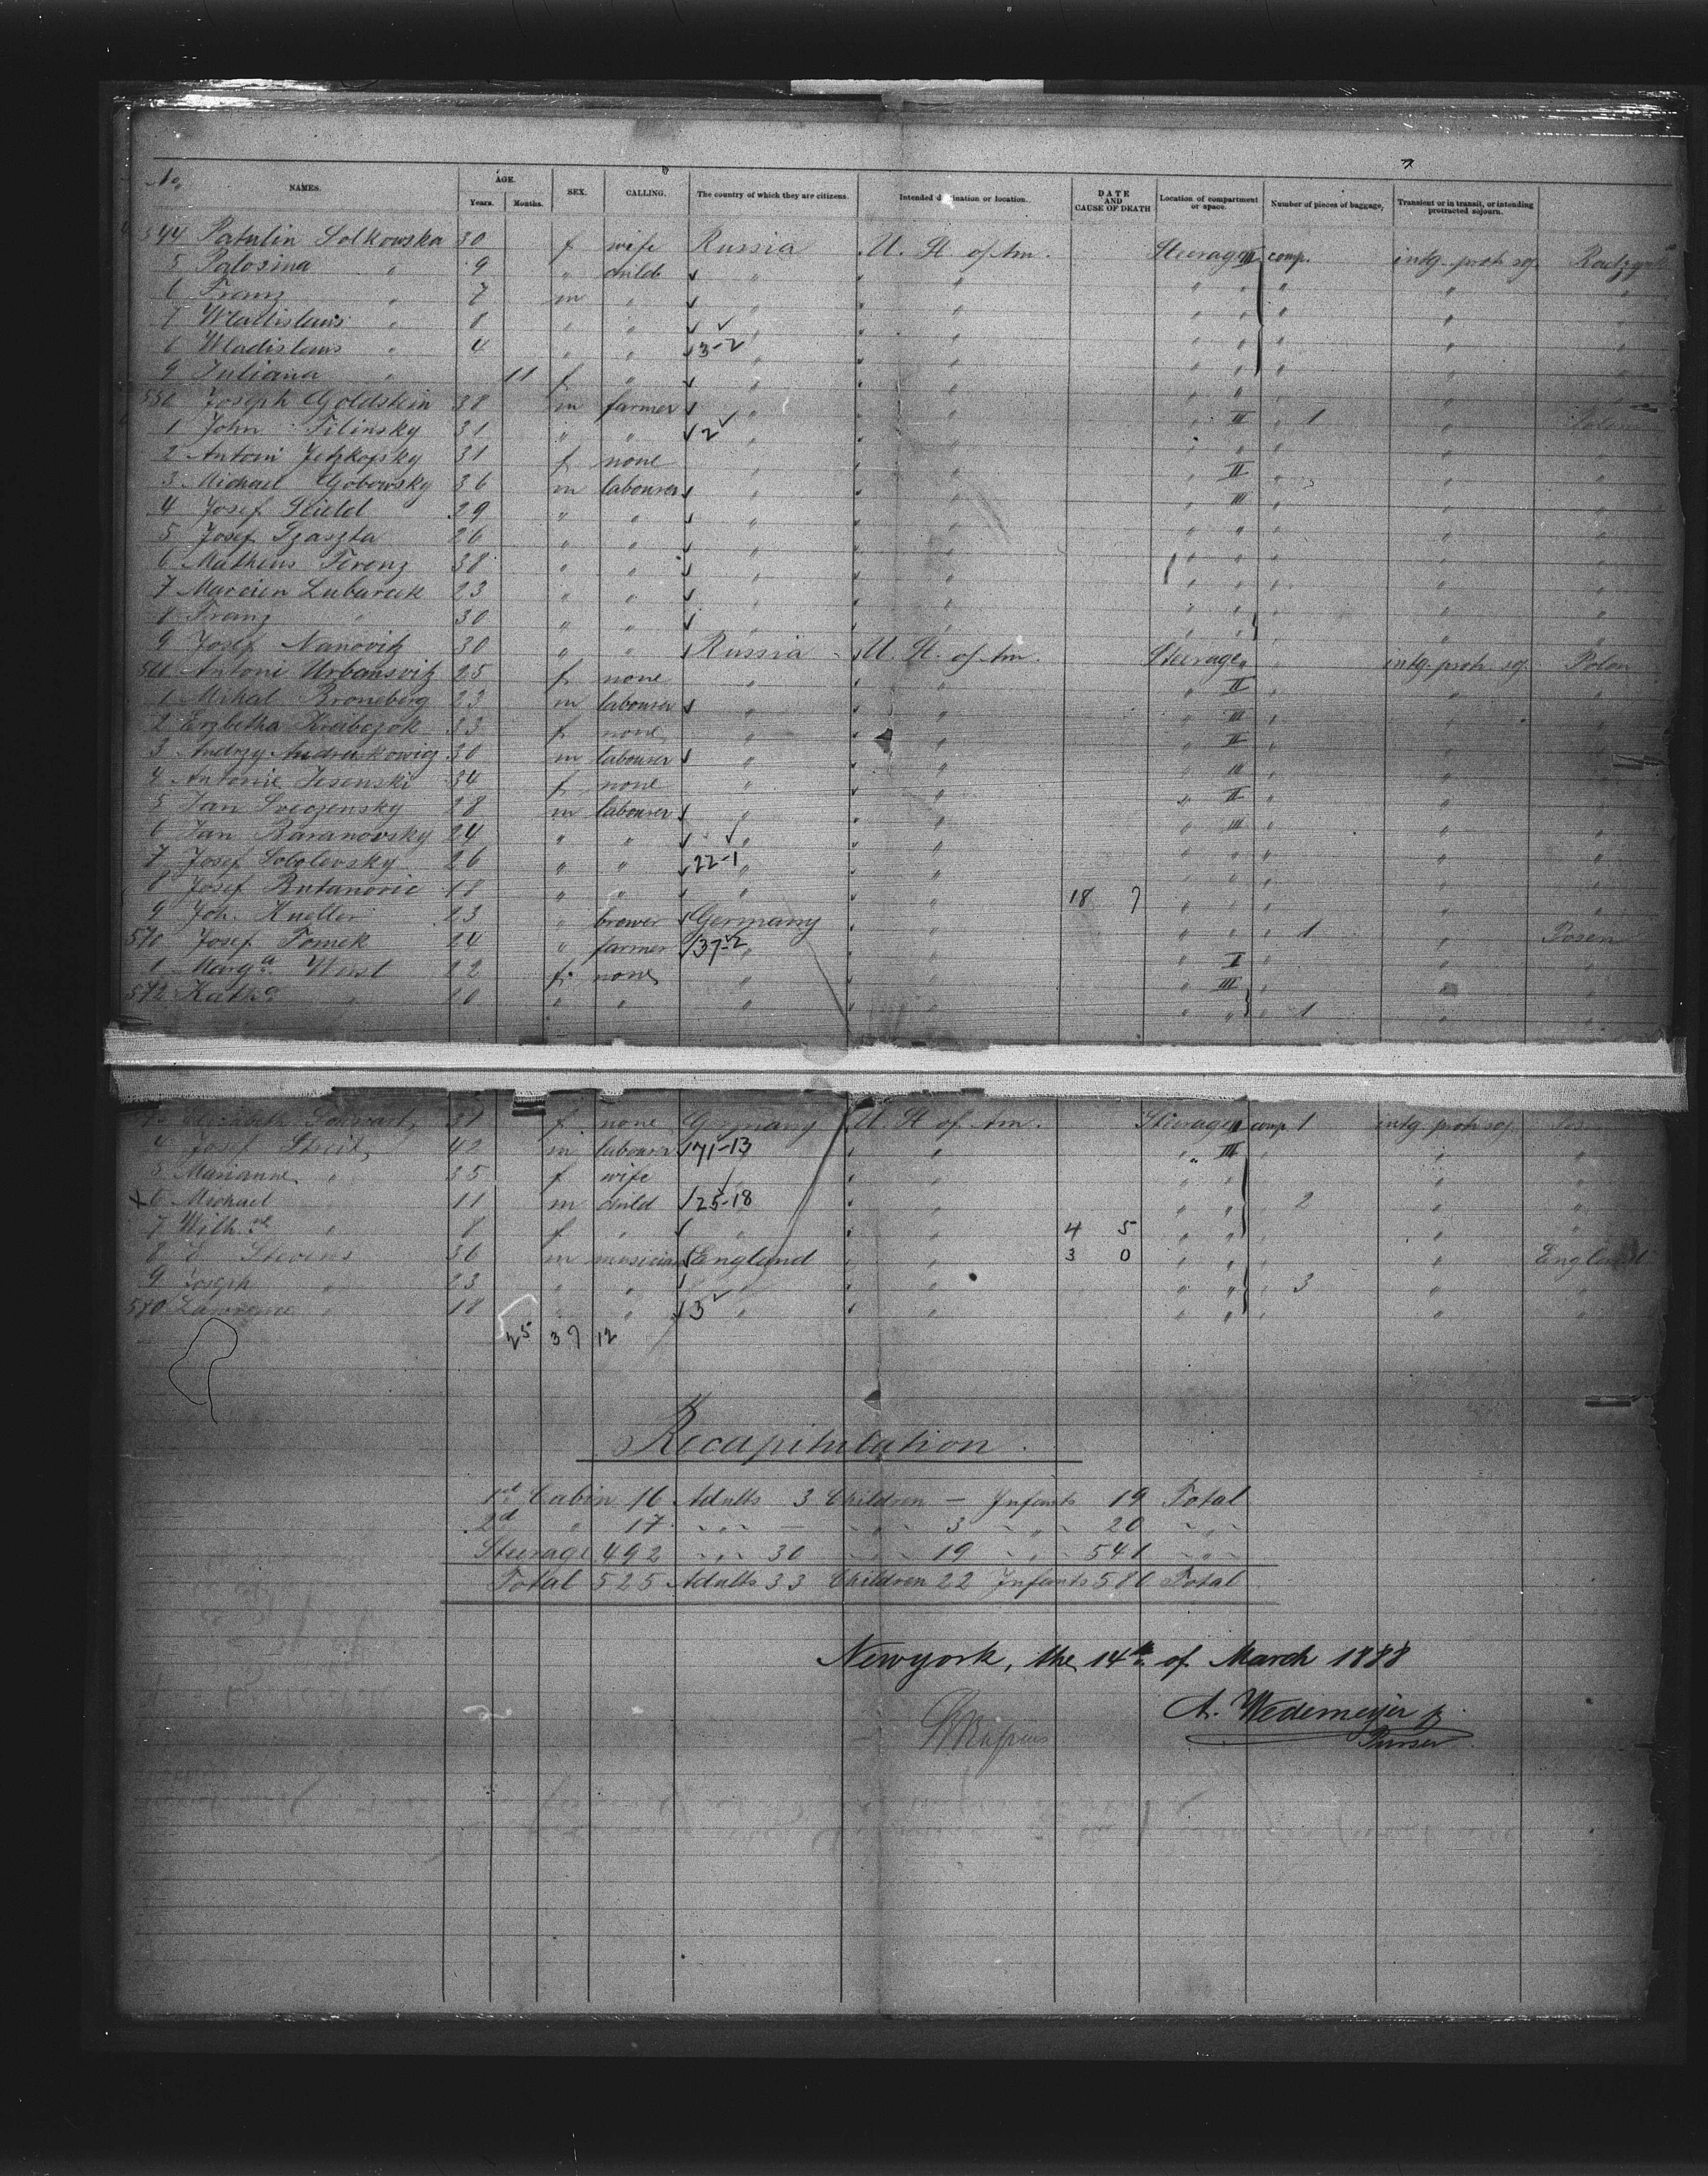 No. NAMES. AGE. Years. Months. SEX. CALLING. The country of which they are citizens. Intended destination or location. DATE AND CAUSE OF DEATH Location of compartment or space. Number of pieces of baggage, Transient or in transit, or intending protracted sojourn.
544 Patulin Solkowska 30 f wife Russia U. St. of Am. Steerage III comp. intg. protr. soj.
5 Palosina " 9 " child " " " " " "
6 Franz " 7 m " " " " " " "
7 Wladislaus " 8 " " " " " " " "
8 Wladislaus " 4 " " 3-2 " " " " " "
9 Juliana " 11 f " " " " " " "
550 Joseph Goldstein 38 m farmer " " " III " 1 " Polen
1 John Filinsky 31 " " 2 " " " " " " "
2 Antoni 31 f none " " " II " " "
3 Michael Gobowsky 36 m labourer " " " III " " "
4 Josef 29 " " " " " " " " "
5 Josef 26 " " " " " " " " "
6 Matheus Ferenz 38 " " " " " " " " "
7 Marcien Lubarcek 23 " " " " " " " " "
8 Franz " 30 " " " " " " " " "
9 Josef Nanovitz 30 " " Russia U. St. of Am. Steerage " " intg. protr. soj. Polen
560 Antoni Urbansvitz 25 f none " " " II " " "
1 Mihal Broneberg 23 m labourer " " " III " " "
2 Erzbetha 33 f none " " " II " " "
3 Andrzy Andruskowig 30 m labourer " " " III " " "
4 Antonie Jesenski 34 f none " " " II " " "
5 Jan 28 m labourer " " " III " " "
6 Jan Baranovsky 24 " " " " " " " " "
7 Josef Sobolevsky 26 " " 22-1 " " " " " " "
8 Josef Butanovic 18 " " " " 18 7 " " " " "
9 Joh. Kueller 23 " brewer Germany " " " " 1 " Posen
570 Josef Tomek 24 " farmer 37-2 " " " I " " "
1 Marg.a Weisl 22 f none " " " III " " "
572 Kath.a " 20 " " " " " " " 1 " "
3 Elizabeth Schwartz 31 f none Germany U. St. of Am. Steerage II comp. 1 intg. protr. soj.
4 Josef Streit 42 m labourer 71-13 " " III " " "
5 Marianne " 35 f wife " " " " " "
x 6 Michael " 11 m child 25-18 " " " " 2 " "
7 Wilh.ne " 8 f " " " 4 5 " " " " "
8 E Stevens 36 m musician England " 3 0 " " " " England
9 Joseph " 23 " " " " " " " 3 " "
580 Lawrence " 18 " " 3 " " " " " " "
25 37 12
Recapitulation.
1st Cabin 16 Adults 3 Children — Infants 19 Total
2d " 17 " — " 3 " 20 "
Steerage 492 " 30 " 19 " 541 "
Total 525 Adults 33 Children 22 Infants 580 Total
Newyork, the 14th of March 1888
A. Wedemeyer jr.
Purser.